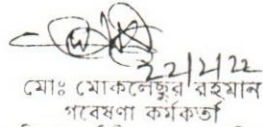 ২২/২/২২
মোঃ মোকলেছুর রহমান
গবেষণা কর্মকর্তা